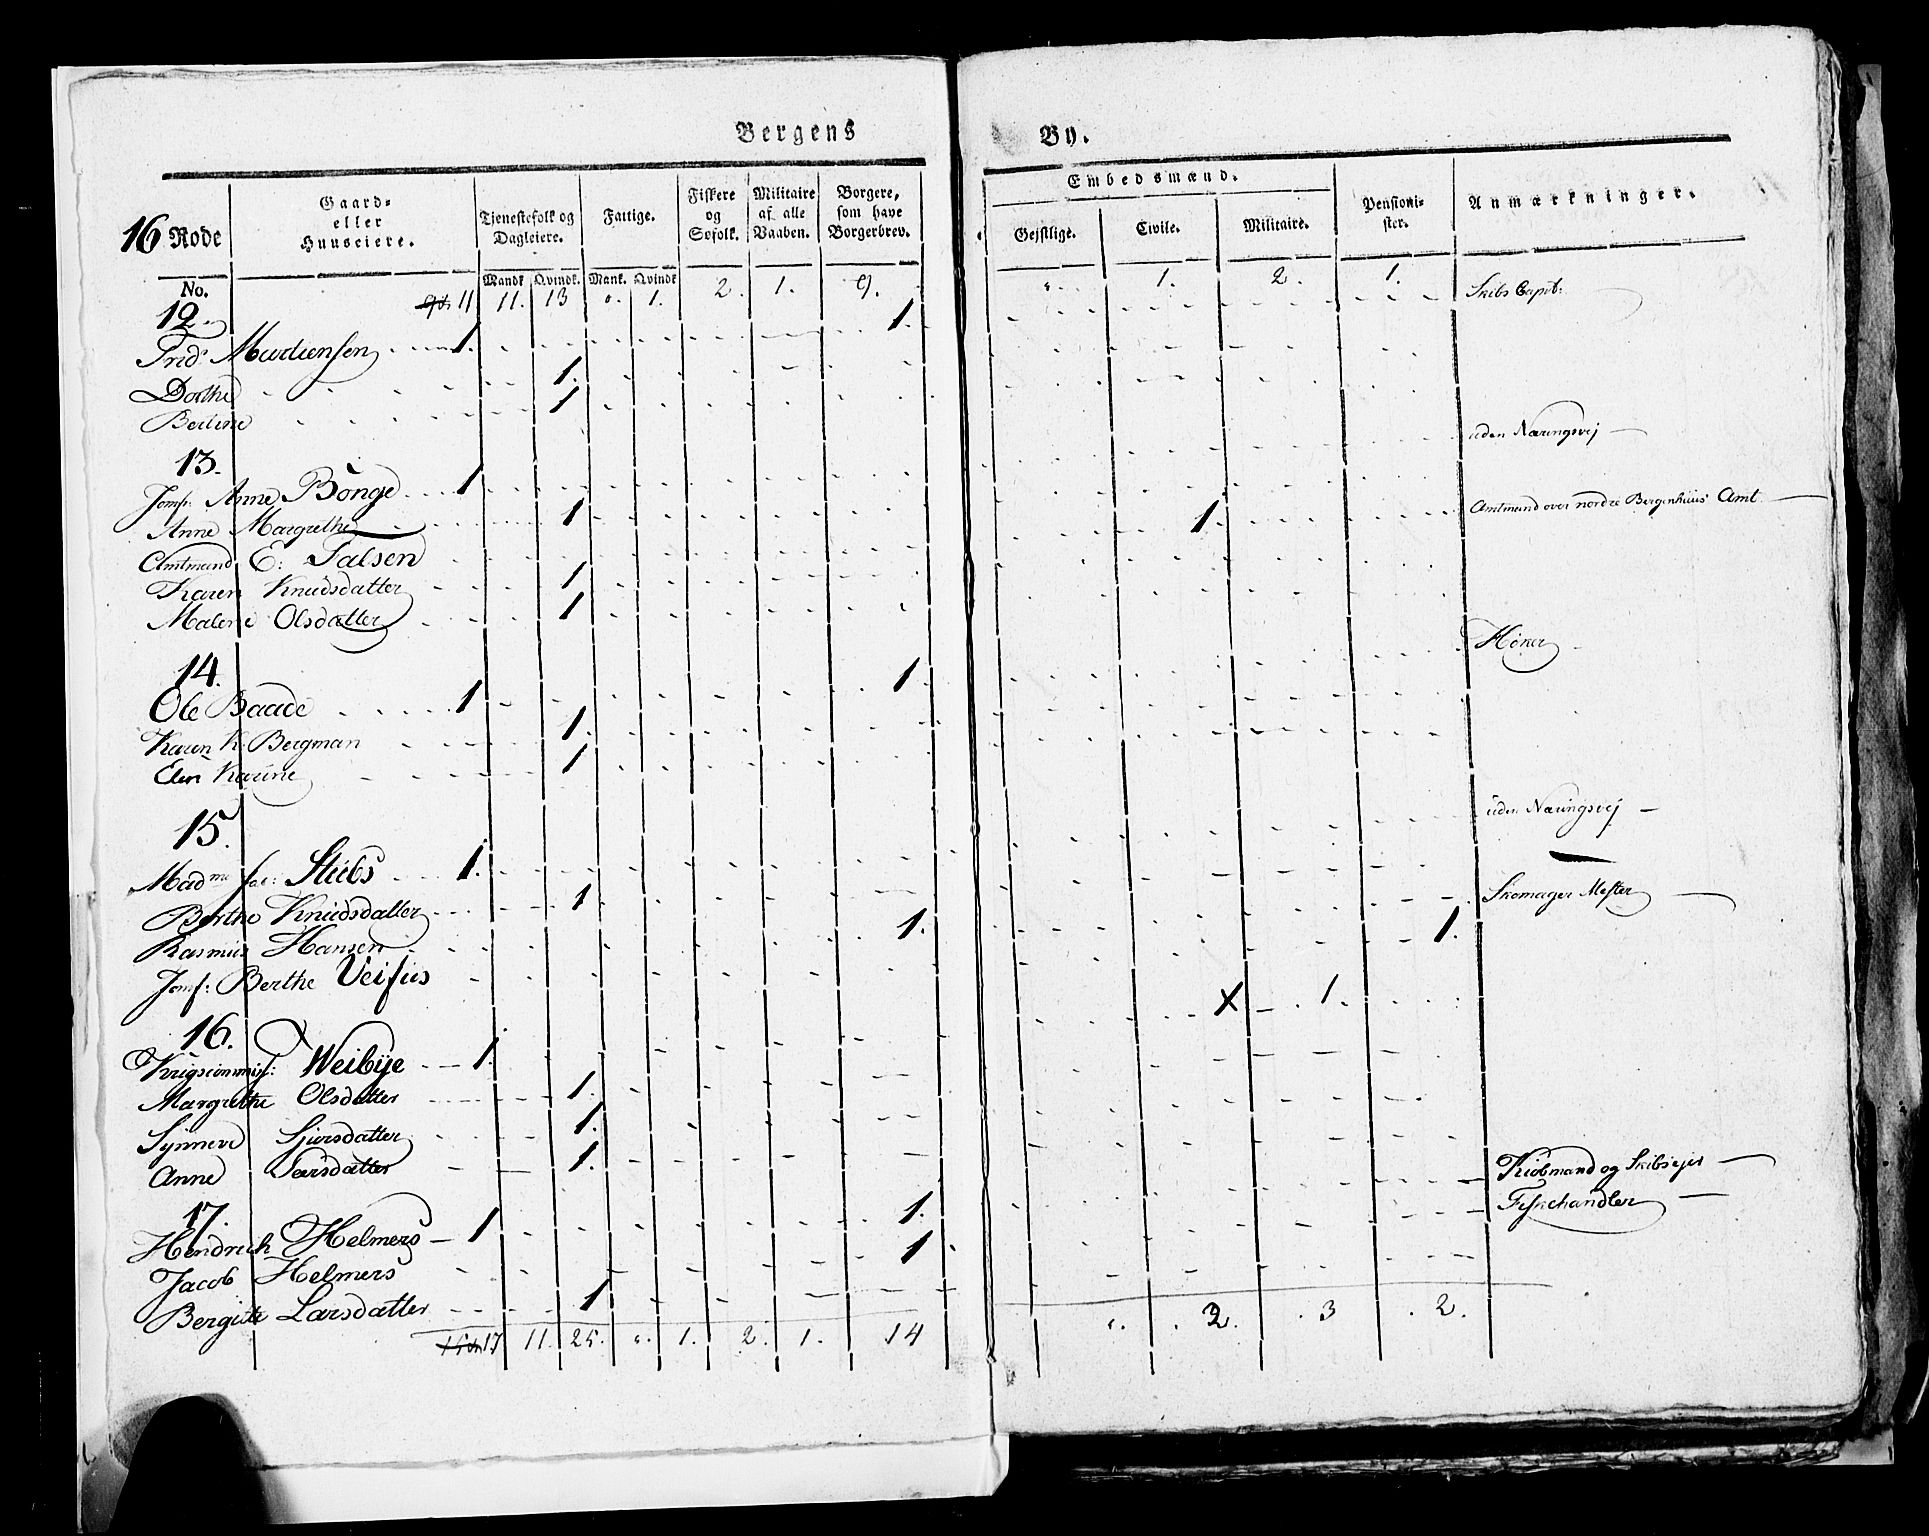 Bergens By.
16 Rode
Gaard- eller Huuseiere.
Tjenestefolk og Dagleiere.
Fattige.
Fiskere og Søfolk.
Militaire af alle Vaaben.
Borgere, som have Borgerbrev.
Embedsmænd.
Gejstlige. Civile. Militaire.
Pensionister.
Anmærkninger.
No. Mandk Qvindk. Mank. Qvindk
11 11. 13 1. 2. 1. 9. 1. 2. 1.
12 1. Skibs Capit:
Frid: Martiensen 1.
Dorthe 1.
Bertine 1
13. uden Næringsvej
Jomf: Anne Bønge 1
Anne Margrethe 1
Amtmand E: Falsen 1. Amtmand over nordre Bergenhuus Amt
Karen Knudsdatter 1
Malene Olsdatter 1
14. 1. Høker
Ole Baade 1
Karen K. Bergman 1.
Elen Karine 1
15. uden Næringsvej
Madme Stubs 1.
Berthe Knudsdatter 1
Rasmus Hansen 1. Skomager Mester
Jomf: Berthe Veisus 1.
16. X 1.
Krigscommiss: Weibye 1.
Margrethe Olsdatter 1.
Synneve Sjursdatter 1.
Anne Larsdatter 1.
17. 1. Kiøbmand og Skibsejer
Hendrich Helmers 1
Jacob Helmers 1 Fiskehandler
Bergitte Larsdatter 1
17 11. 25. 1. 2. 1. 14 2. 3 2.